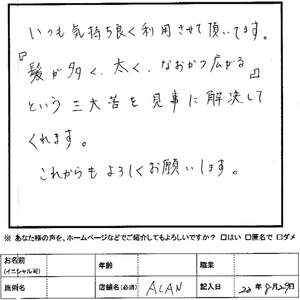 いつも気持ち良く利用させて頂いてます。
『髪が多く、太く、なおかつ広がる』
という三大苦を見事に解決して
くれます。
これからもよろしくお願いします。
※ あなた様の声を、ホームページなどでご紹介してもよろしいですか？ □はい □匿名で □ダメ
お名前
(イニシャル可)
年齢
職業
施術名
店舗名(必須)
ALAN
記入日
20年8月29日